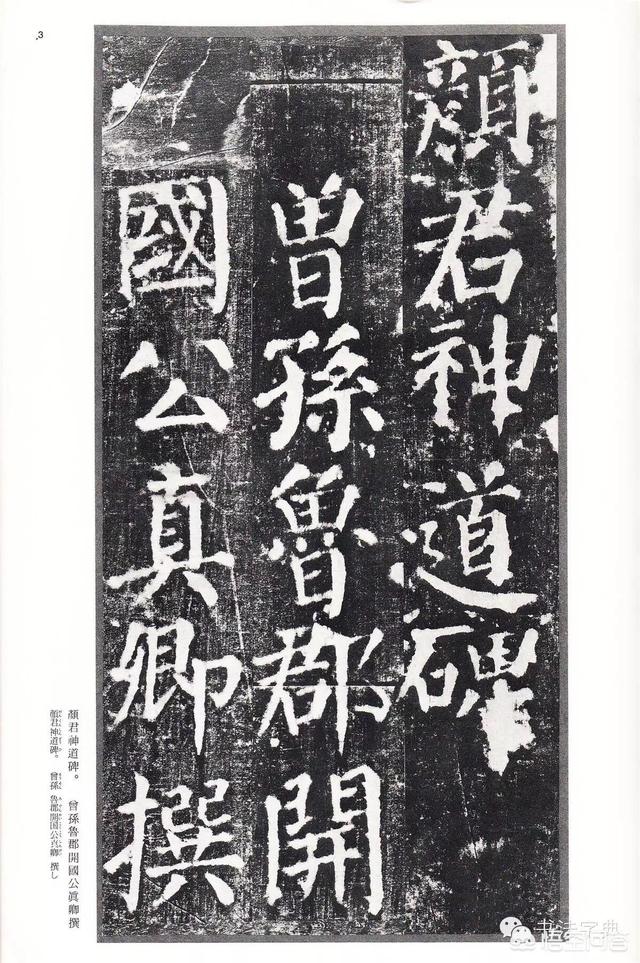 3
顏君神道碑
曾孫魯郡開
國公真卿撰
顏君神道碑。 曾孫魯郡開國公眞卿撰
顏君神道碑。 曾孫 魯郡開国公真卿 撰し
书法字典